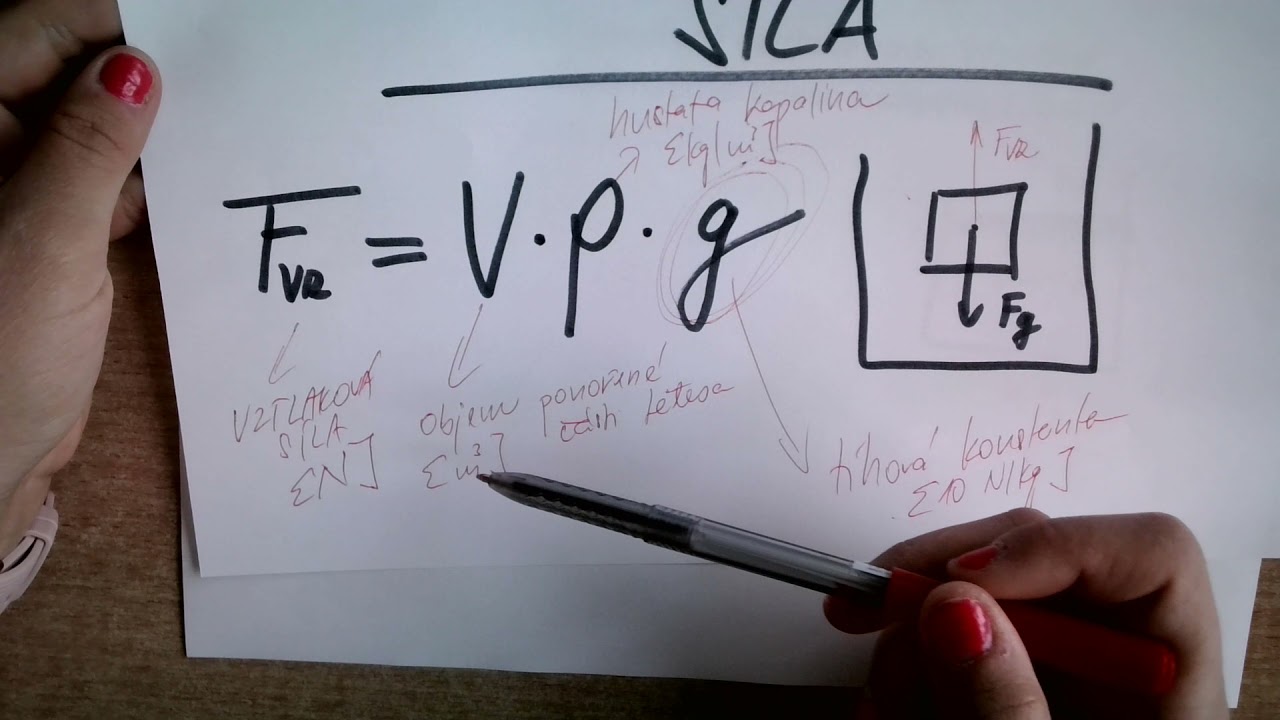 SÍLA
hustata kapalina
[kg/m³]
Fvz = V · ρ · g
Fvz
Fg
VZTLAKOVÁ
SÍLA
[N]
objem ponořené
části tělesa
[m³]
tíhová konstanta
[10 N/kg]